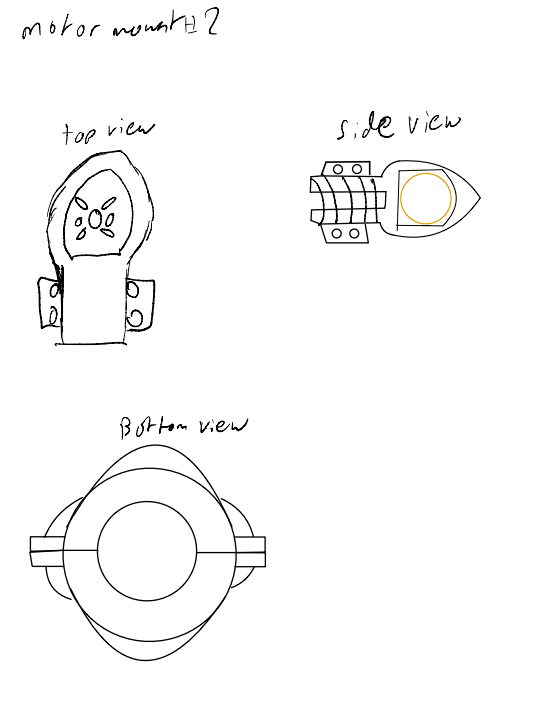 motor mount #2
top view
side view
Bottom view